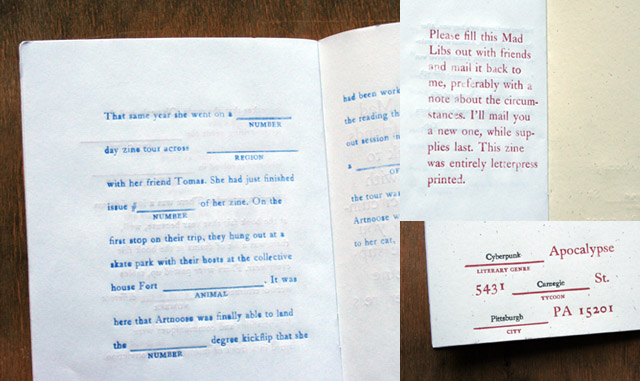 That same year she went on a
NUMBER
day zine tour across
REGION
with her friend Tomas. She had just finished
issue # of her zine. On the
NUMBER
first stop on their trip, they hung out at a
skate park with their hosts at the collective
house Fort . It was
ANIMAL
here that Artnoose was finally able to land
the degree kickflip that she
NUMBER
had been work
the reading th
out session in
a
OF
the tour was
Artnoose w
to her cat,
Please fill this Mad
Libs out with friends
and mail it back to
me, preferably with a
note about the circum-
stances. I'll mail you
a new one, while sup-
plies last. This zine
was entirely letterpress
printed.
Cyberpunk Apocalypse
LITERARY GENRE
5431 Carnegie St.
TYCOON
Pittsburgh PA 15201
CITY